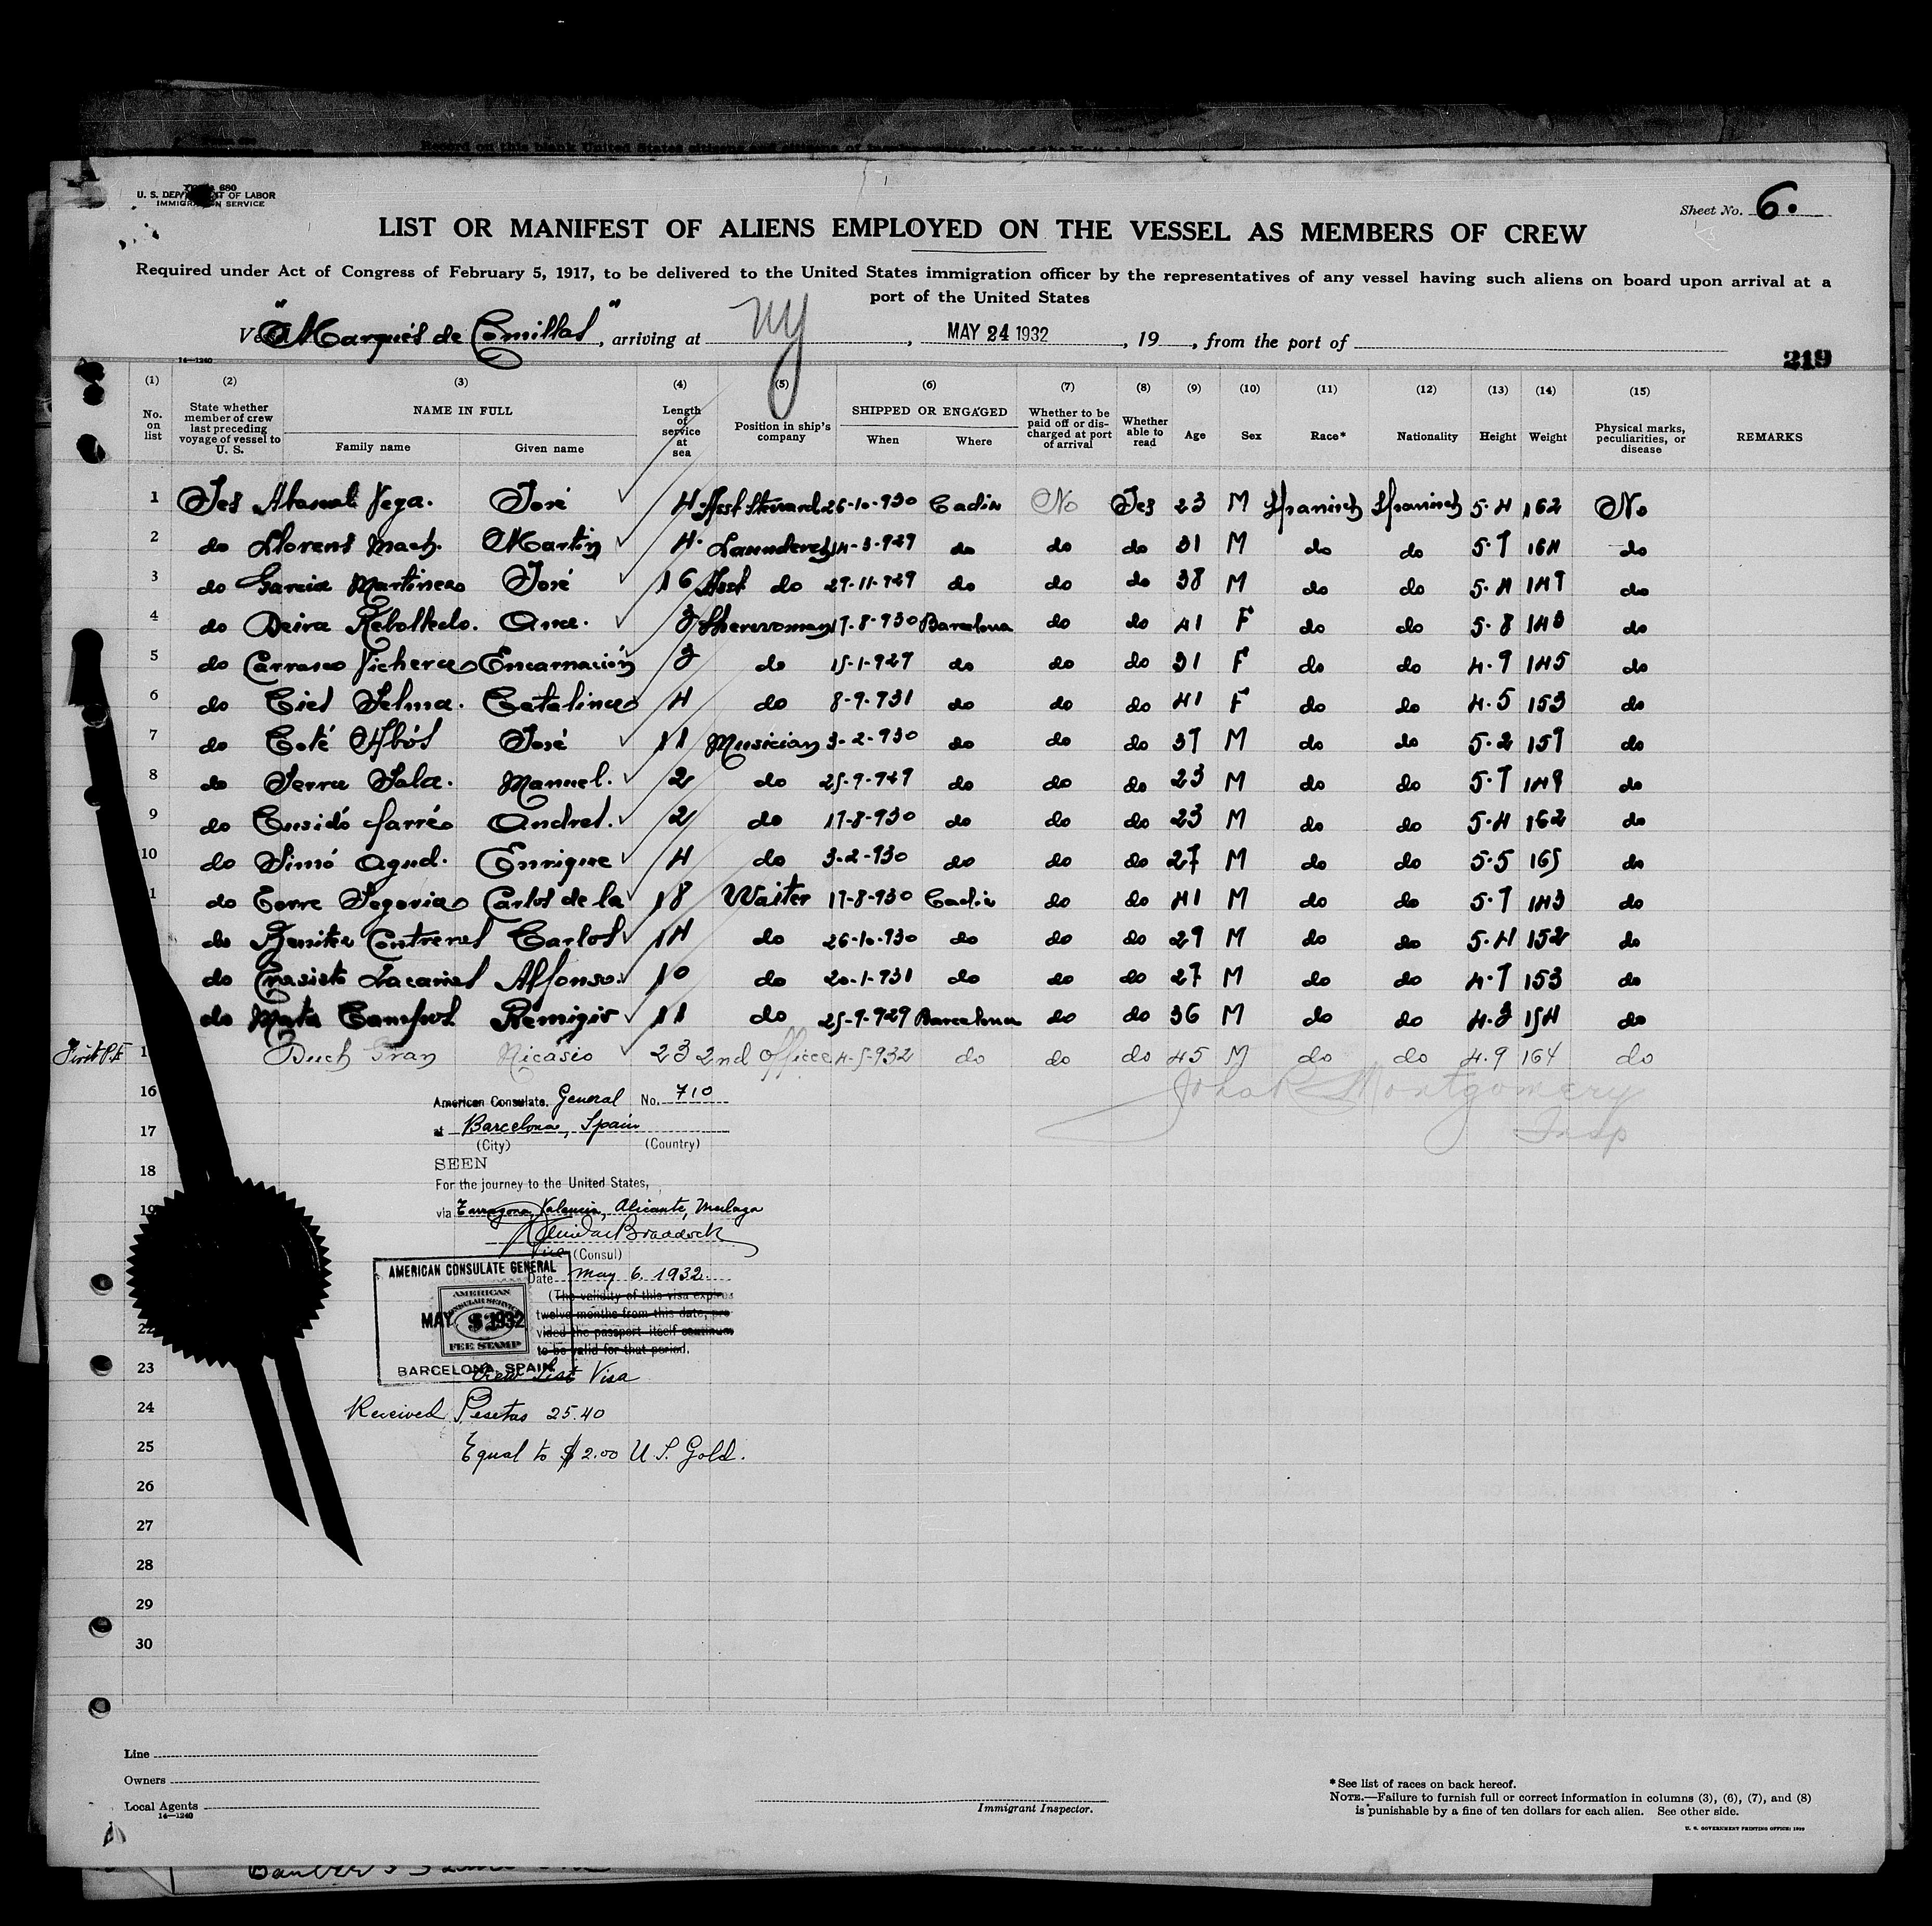 U. S. DEPARTMENT OF LABOR
IMMIGRATION SERVICE
Sheet No. 6.
LIST OR MANIFEST OF ALIENS EMPLOYED ON THE VESSEL AS MEMBERS OF CREW
Required under Act of Congress of February 5, 1917, to be delivered to the United States immigration officer by the representatives of any vessel having such aliens on board upon arrival at a
port of the United States
"Marqués de Comillas", arriving at NY, MAY 24 1932, 19, from the port of
14—1240
219
(1) (2) (3) (4) (5) (6) (7) (8) (9) (10) (11) (12) (13) (14) (15)
No. on list State whether member of crew last preceding voyage of vessel to U. S. NAME IN FULL Family name Given name Length of service at sea Position in ship's company SHIPPED OR ENGAGED When Where Whether to be paid off or discharged at port of arrival Whether able to read Age Sex Race* Nationality Height Weight Physical marks, peculiarities, or disease REMARKS
1 Yes Vega. José 4 Asst Steward 26-10-930 Cadiz No Yes 23 M Spanisch Spanisch 5.4 162 No
2 do Llorens Mach. Martin 4 14-3-929 do do do 31 M do do 5.7 164 do
3 do Garcia Martinez José 16 Asst do 29-11-929 do do do 38 M do do 5.4 147 do
4 do Neira Rebolledo. Ana. 3 17-8-930 Barcelona do do 41 F do do 5.8 143 do
5 do Carrasco Encarnación 3 do 15-1-929 do do do 31 F do do 4.9 145 do
6 do Selma. Catalina 4 do 8-9-931 do do do 41 F do do 4.5 153 do
7 do Coté Abós José 11 Musician 3-2-930 do do do 37 M do do 5.2 157 do
8 do Serra Sala. Manuel. 2 do 25-9-929 do do do 23 M do do 5.7 149 do
9 do Cusidó Farré Andres. 2 do 17-8-930 do do do 23 M do do 5.4 162 do
10 do Simó Agud. Enrique 4 do 3-2-930 do do do 27 M do do 5.5 165 do
1 do Torre Segovia Carlos de la 18 Waiter 17-8-930 Cadiz do do 41 M do do 5.7 143 do
do Benitez Contreras Carlos 14 do 26-10-930 do do do 29 M do do 5.4 152 do
do Alfonso. 10 do 20-1-931 do do do 27 M do do 4.7 153 do
do Mata Campos Remigio 11 do 25-9-929 Barcelona do do 36 M do do 4.3 154 do
1 Duch Gran Nicasio 23 2nd Officer 4-5-932 do do do 45 M do do 4.9 164 do
16
American Consulate. General No. 710
John R Montgomery
17
at Barcelona, Spain
(City) (Country)
Insp
18
SEEN
For the journey to the United States,
19
via Tarragona, Valencia, Alicante, Malaga
Braddock
Vice (Consul)
AMERICAN CONSULATE GENERAL
Date May 6, 1932.
(The validity of this visa expires
twelve months from this date, pro-
vided the passport itself continues
to be valid for that period.
AMERICAN
CONSULAR SERVICE
MAY 1932
$2
FEE STAMP
BARCELONA, SPAIN
22
23
Crew List Visa
24
Received Pesetas 25.40
25
Equal to $2.00 U.S. Gold.
26
27
28
29
30
Line
Owners
Local Agents
14—1240
Immigrant Inspector.
*See list of races on back hereof.
NOTE.—Failure to furnish full or correct information in columns (3), (6), (7), and (8)
is punishable by a fine of ten dollars for each alien. See other side.
U. S. GOVERNMENT PRINTING OFFICE: 1930